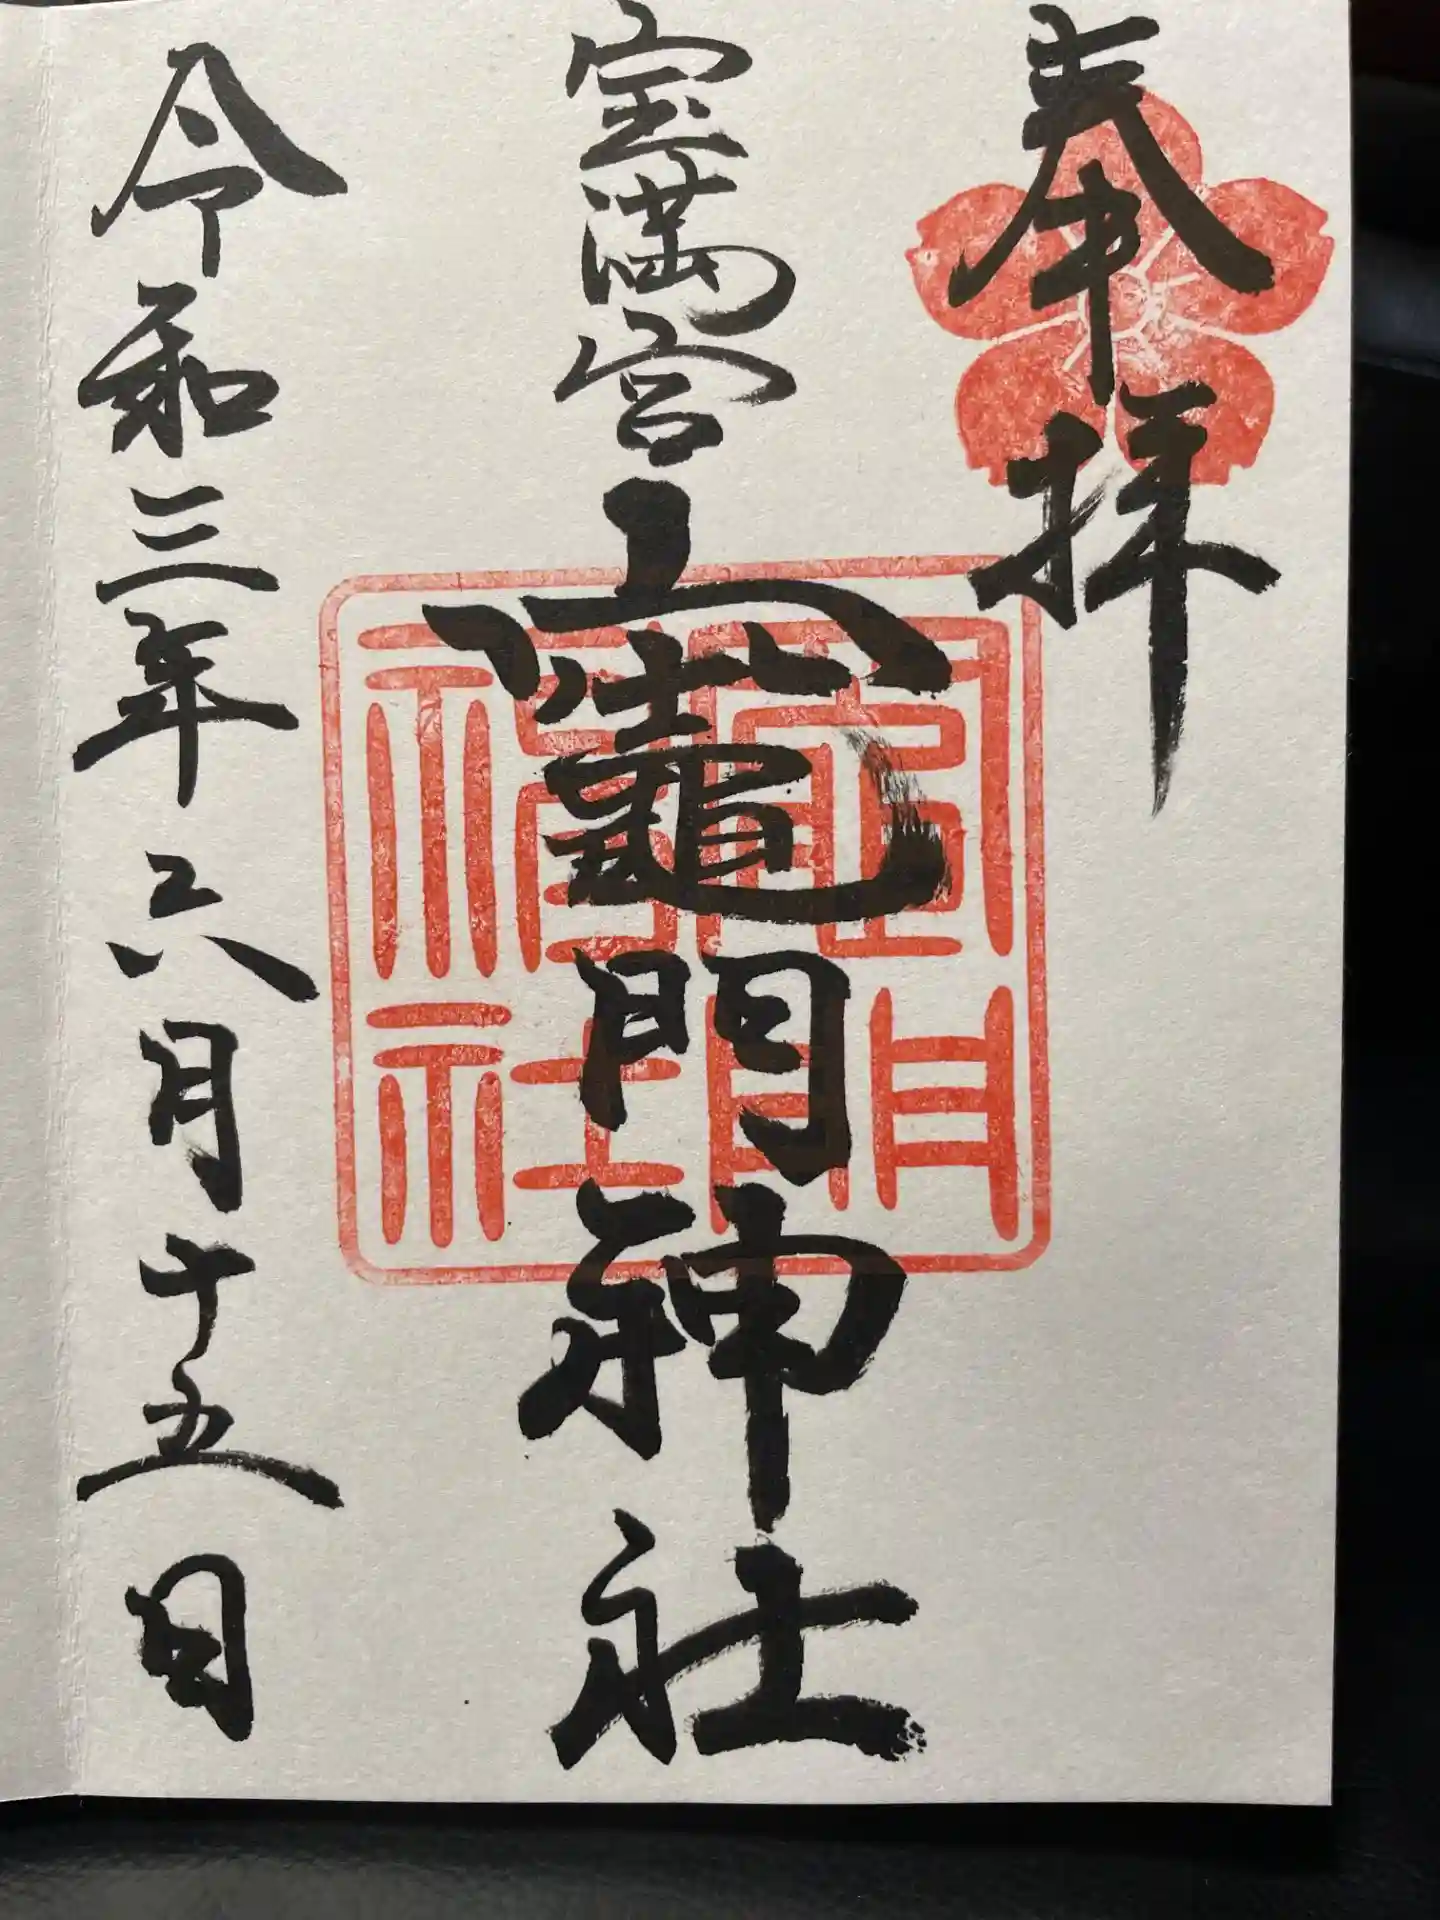 奉拝
宝満宮竈門神社
令和三年六月十五日
竈門
神社